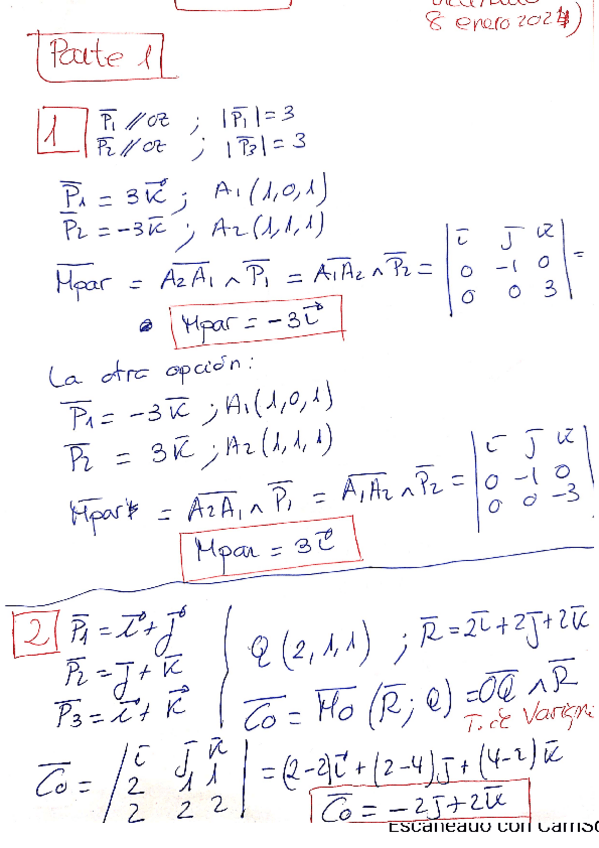 8 enero 2024)
Parte 1
1 P̅₁ // oz ; |P̅₁|=3
P̅₂ // oz ; |P̅₃|=3
P̅₁ = 3k⃗ ; A₁(1,0,1)
P̅₂ = -3k⃗ ; A₂(1,1,1)
M̅par = A̅₂A̅₁ ∧ P̅₁ = A̅₁A̅₂ ∧ P̅₂ = | i̅ j̅ k̅ | =
| 0 -1 0 |
| 0 0 3 |
Mpar = -3i⃗
La otra opción:
P̅₁ = -3k̅ ; A₁(1,0,1)
P̅₂ = 3k̅ ; A₂(1,1,1)
M̅par = A̅₂A̅₁ ∧ P̅₁ = A̅₁A̅₂ ∧ P̅₂ = | i̅ j̅ k̅ |
| 0 -1 0 |
| 0 0 -3 |
Mpar = 3i⃗
2 P̅₁ = i⃗ + j⃗
P̅₂ = j̅ + k̅
P̅₃ = i⃗ + k⃗
Q(2,1,1) ; R̅ = 2i̅+2j̅+2k̅
C̅o = M̅o (R̅; Q) = O̅Q̅ ∧ R̅
T. de Varign
C̅o = | i̅ j̅ k̅ | = (2-2)i⃗ + (2-4)j̅ + (4-2)k̅
| 2 1 1 |
| 2 2 2 |
C̅o = -2j̅+2k̅
Escaneado con CamSc